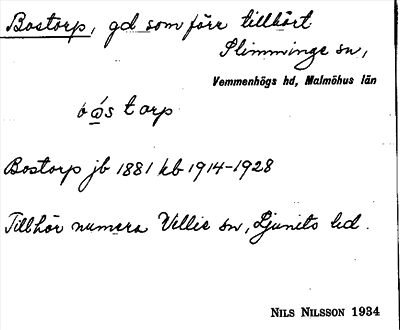 Bostorp, gd som förr tillhört
Slimminge sn,
Vemmenhögs hd, Malmöhus län
bó̲storp
Bostorp jb 1881 kb 1914-1928
Tillhör numera Vellie sn, Ljunits hd.
NILS NILSSON 1934